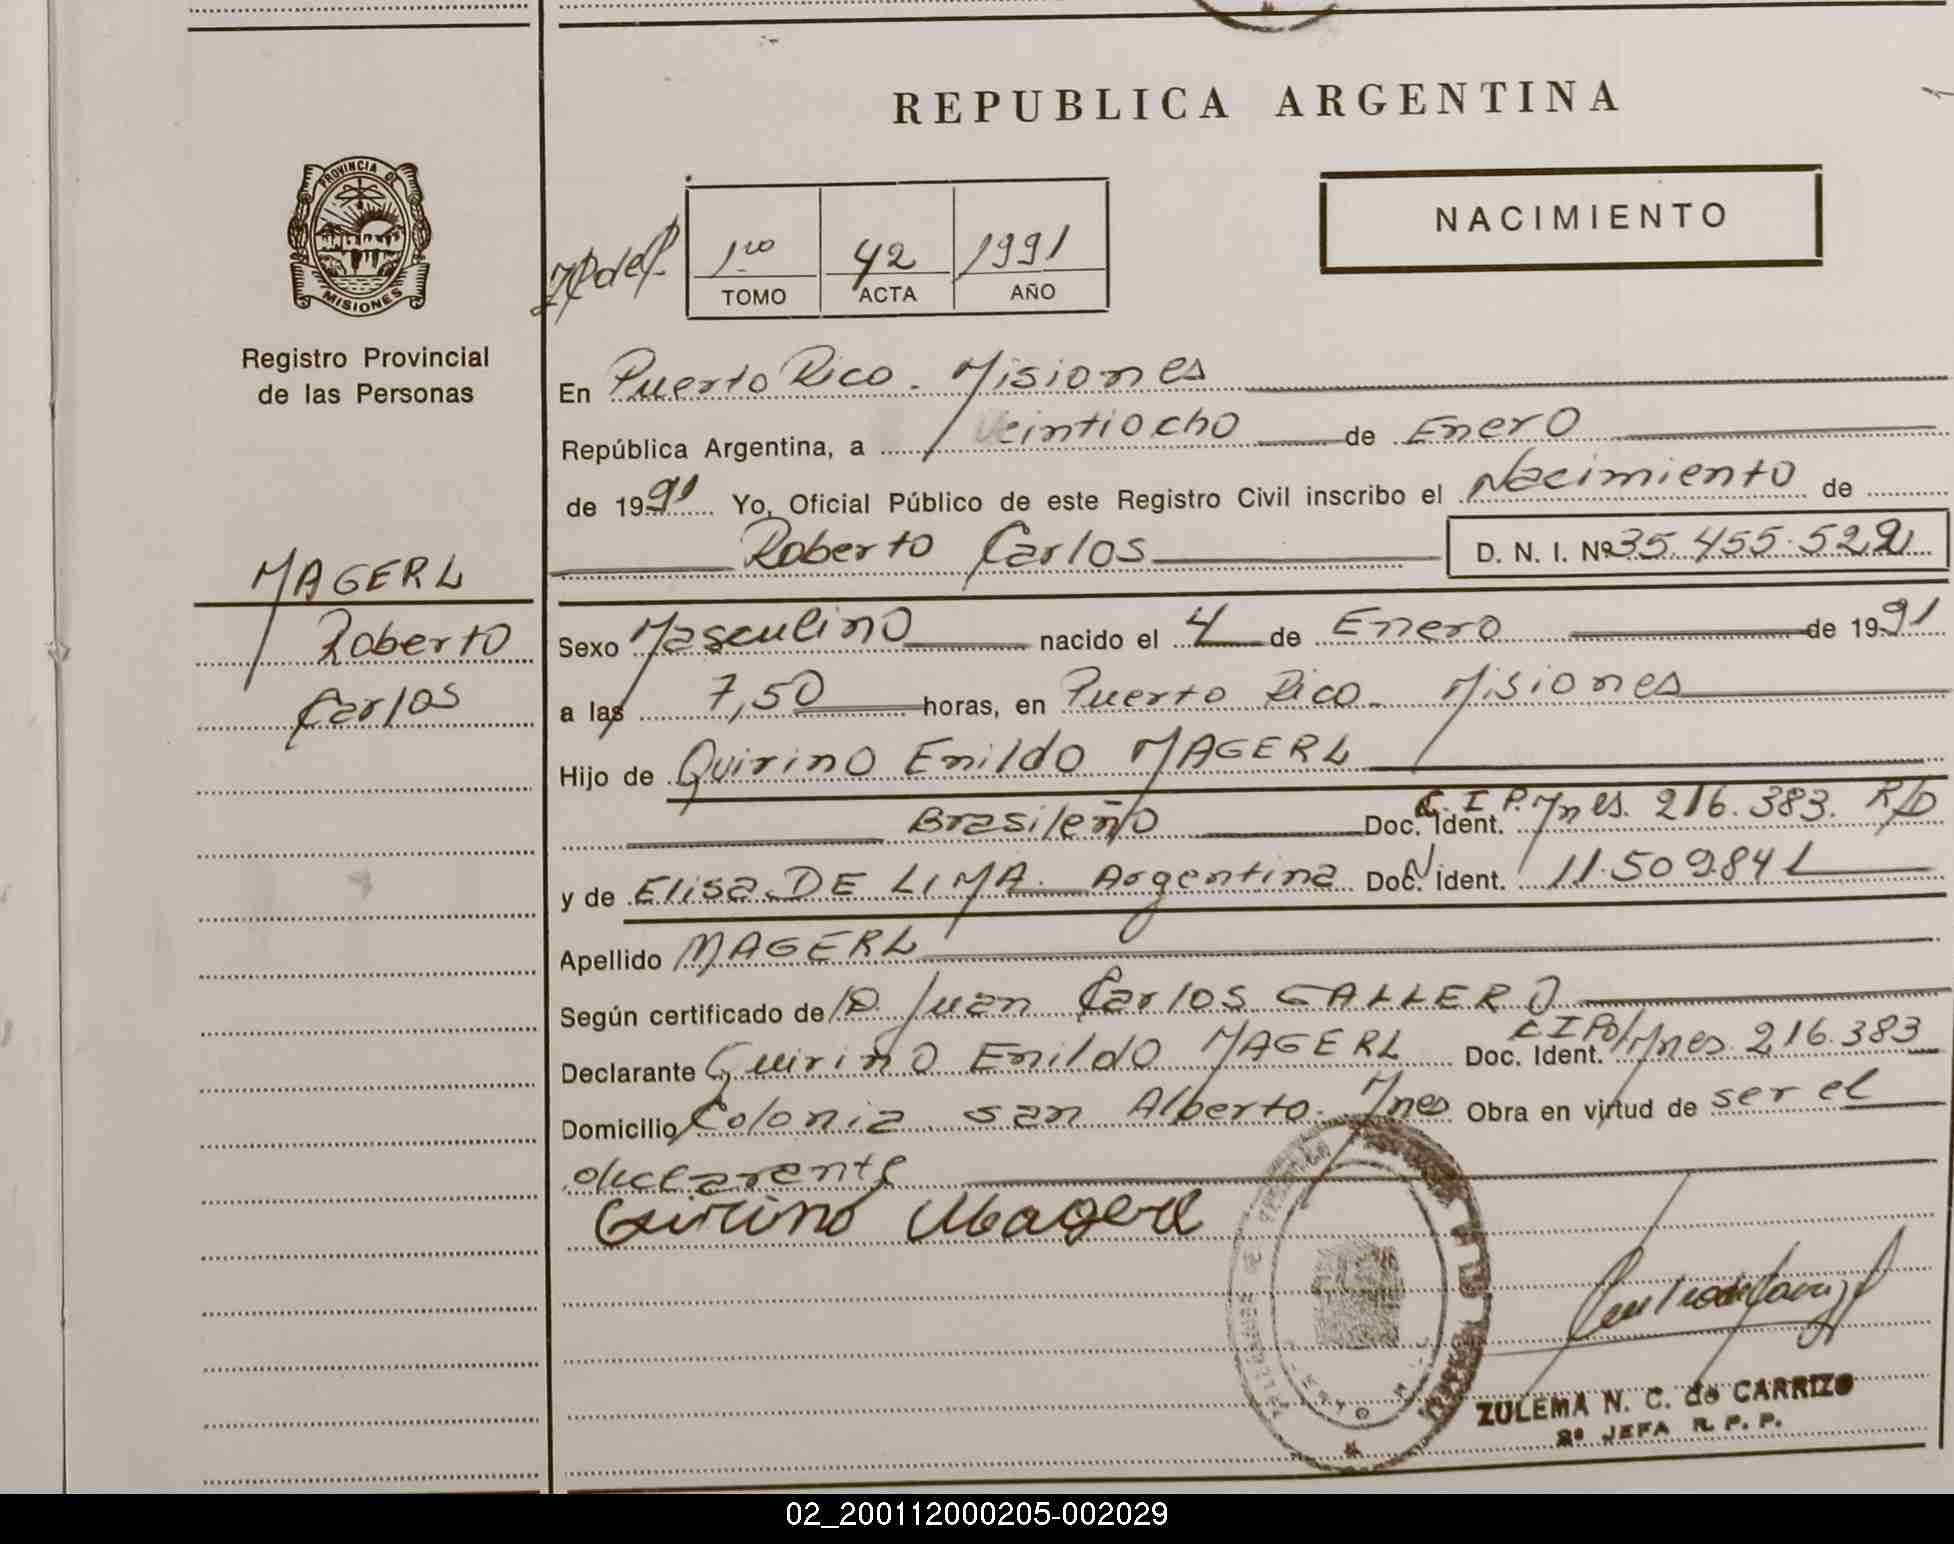 REPUBLICA ARGENTINA
PROVINCIA DE
MISIONES
NACIMIENTO
1ro 42 1991
TOMO ACTA AÑO
Registro Provincial
de las Personas
En Puerto Rico. Misiones
República Argentina, a Veintiocho de Enero
de 1991 Yo, Oficial Público de este Registro Civil inscribo el Nacimiento de
Roberto Carlos D. N. I. Nº 35.455.522
MAGERL
Roberto
Carlos
Sexo Masculino nacido el 4 de Enero de 1991
a las 7,50 horas, en Puerto Rico. Misiones
Hijo de Quirino Enildo MAGERL
Brasileño Doc. Ident. C.I.P. Mnes. 216.383. R/D
y de Elisa DE LIMA. Argentina Doc. Ident. 11.509.841
Apellido MAGERL
Según certificado de D. Juan Carlos GALLERO
Declarante Quirino Enildo MAGERL Doc. Ident. Mnes. 216.383
Domicilio Colonia san Alberto. Mnes Obra en virtud de ser el
declarante
Quirino Magerl
ZULEMA N. C. de CARRIZO
2ª JEFA R. P. P.
02_200112000205-002029